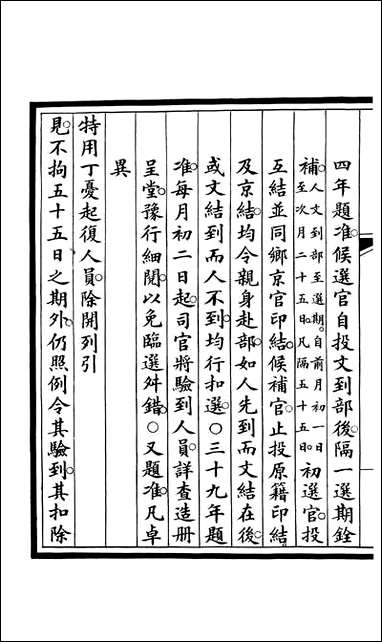 四年題准候選官自投文到部後隔一選期銓
補人文到部至選期自前月初一日至次月二十五日凡隔五十五日初選官投
互結並同鄉京官印結候補官止投原籍印結
及京結均令親身赴部如人先到而文結在後
或文結到而人不到均行扣選○三十九年題
准每月初二日起司官將驗到人員詳查造冊
呈堂豫行細閱以免臨選舛錯○又題准凡卓
異
特用丁憂起復人員除開列引
見不拘五十五日之期外仍照例令其驗到其扣除